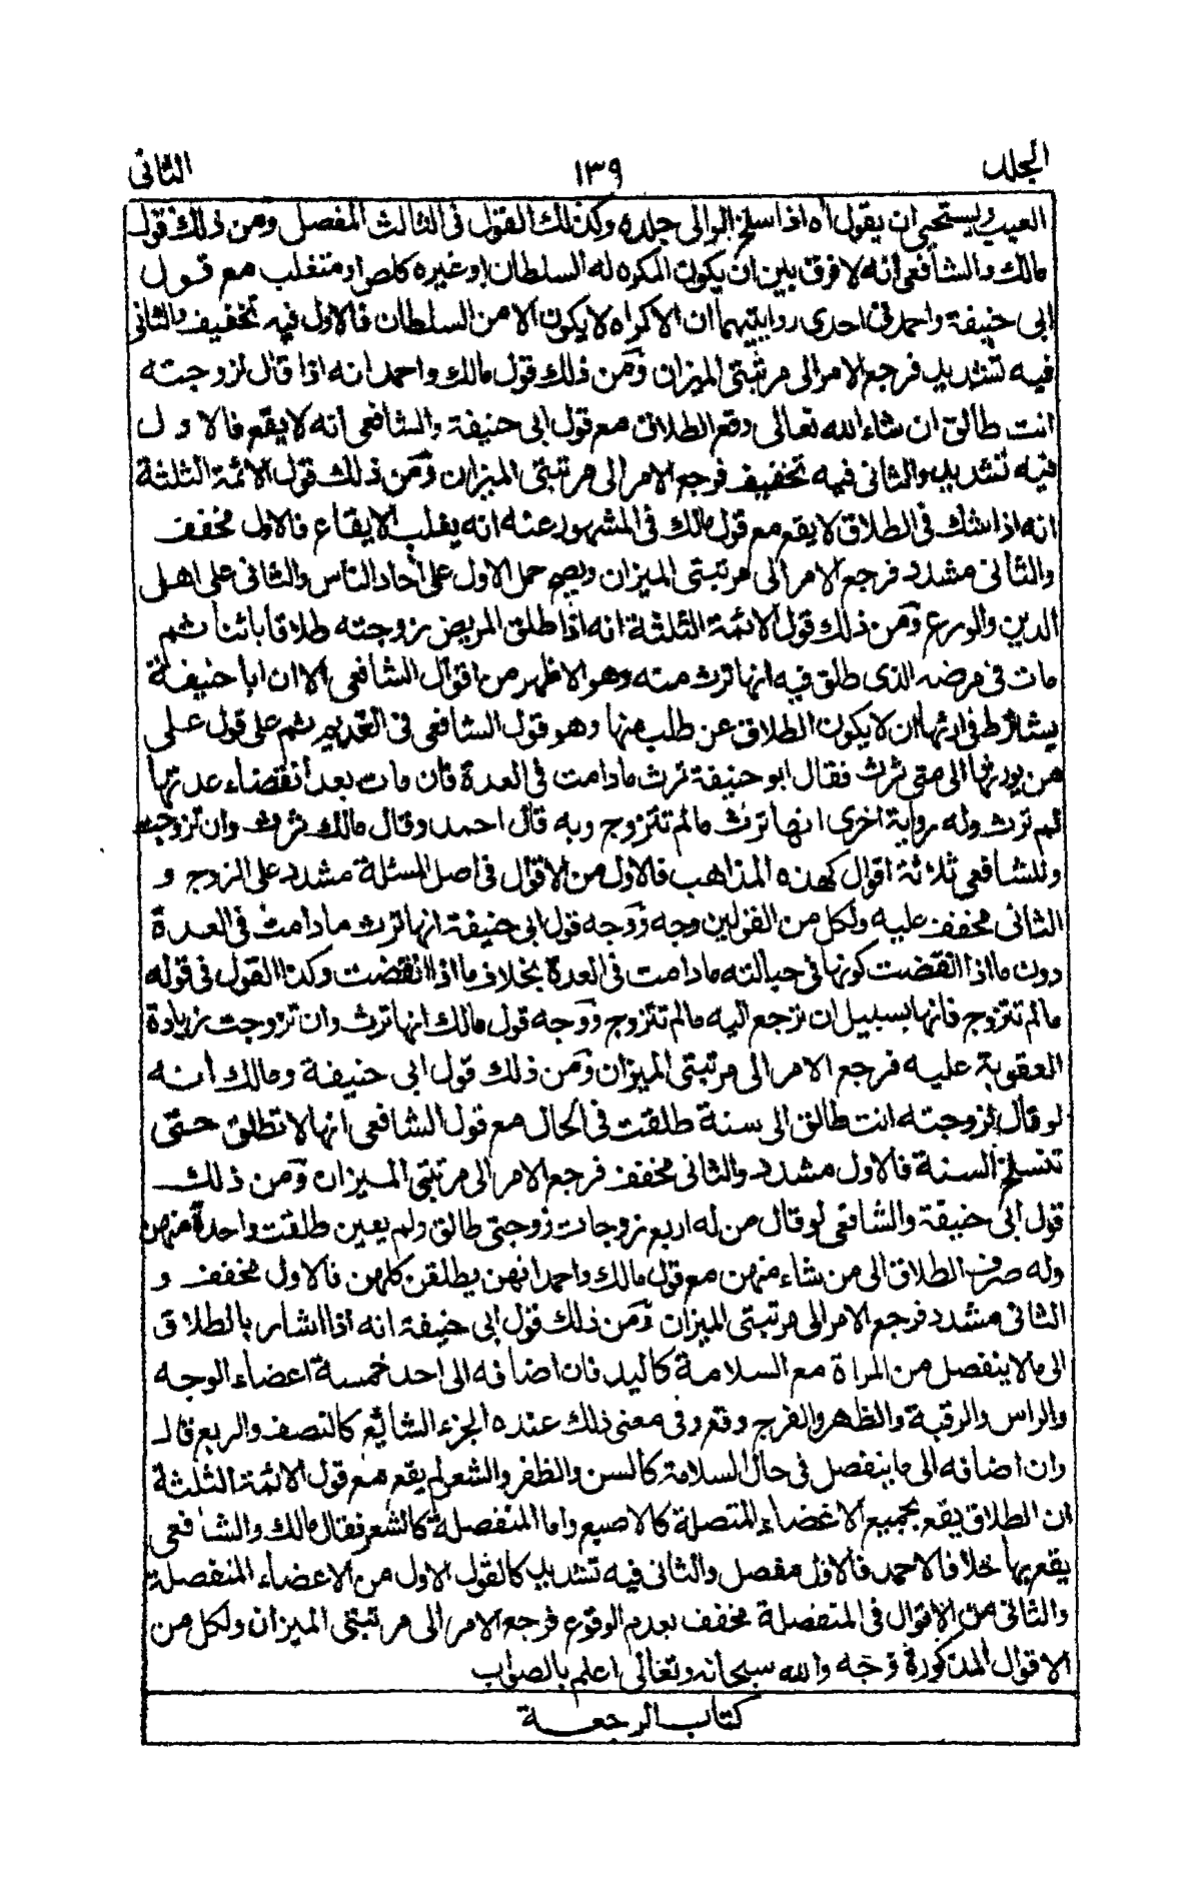 الجلد ١٣٩ الثانى
العيب ويستحيى ان يقول اه اذا سلخ الوالى جلده وكذلك القول فى الثالث المفصل ومن ذلك قول
مالك والشافعى انه لا فرق بين ان يكون المكره له السلطان او غيره كلص او متغلب مع قول
ابى حنيفة واحمد فى احدى روايتيهما ان الاكراه لا يكون الا من السلطان فالاول فيه تخفيف والثانى
فيه تشديد فرجع الامر الى مرتبتى الميزان ومن ذلك قول مالك واحمد انه اذا قال لزوجته
انت طالق ان شاء الله تعالى وقع الطلاق مع قول ابى حنيفة والشافعى انه لا يقع فالاول
فيه تشديد والثانى فيه تخفيف فرجع الامر الى مرتبتى الميزان ومن ذلك قول الائمة الثلثة
انه اذا شك فى الطلاق لا يقع مع قول مالك فى المشهور عنه انه يغلب الايقاع فالاول مخفف
والثانى مشدد فرجع الامر الى مرتبتى الميزان ويصح حمل الاول على آحاد الناس والثانى على اهل
الدين والورع ومن ذلك قول الائمة الثلثة انه اذا طلق المريض زوجته طلاقا بائنا ثم
مات فى مرضه الذى طلق فيه انها ترث منه وهو الاظهر من اقوال الشافعى الا ان ابا حنيفة
يشترط فى ارثها ان لا يكون الطلاق عن طلب منها وهو قول الشافعى فى القديم ثم على قول على
من يورثها الى متى ترث فقال ابو حنيفة ترث ما دامت فى العدة فان مات بعد انقضاء عدتها
لم ترث وله رواية اخرى انها ترث ما لم تتزوج وبه قال احمد وقال مالك ترث وان تزوجت
وللشافعى ثلاثة اقوال كهذه المذاهب فالاول من الاقوال فى اصل المسئلة مشدد على الزوج و
الثانى مخفف عليه ولكل من القولين وجه ووجه قول ابى حنيفة انها ترث ما دامت فى العدة
دون ما اذا انقضت كونها فى حبالته ما دامت فى العدة بخلاف ما اذا انقضت وكذا القول فى قوله
ما لم تتزوج فانها بسبيل ان ترجع اليه ما لم تتزوج ووجه قول مالك انها ترث وان تزوجت زيادة
العقوبة عليه فرجع الامر الى مرتبتى الميزان ومن ذلك قول ابى حنيفة ومالك انه
لو قال لزوجته انت طالق الى سنة طلقت فى الحال مع قول الشافعى انها لا تطلق حتى
تنسلخ السنة فالاول مشدد والثانى مخفف فرجع الامر الى مرتبتى الميزان ومن ذلك
قول ابى حنيفة والشافعى لو قال من له اربع زوجات زوجتى طالق ولم يعين طلقت واحدة منهن
وله صرف الطلاق الى من شاء منهن مع قول مالك واحمد انهن يطلقن كلهن فالاول مخفف و
الثانى مشدد فرجع الامر الى مرتبتى الميزان ومن ذلك قول ابى حنيفة انه اذا اشار بالطلاق
الى ما لا ينفصل من المراة مع السلامة كاليد فان اضافه الى احد خمسة اعضاء الوجه
والراس والرقبة والظهر والفرج وقع وفى معنى ذلك عنده الجزء الشائع كالنصف والربع قال
وان اضافه الى ما ينفصل فى حال السلامة كالسن والظفر والشعر لم يقع مع قول الائمة الثلثة
ان الطلاق يقع بجميع الاعضاء المتصلة كالاصبع واما المنفصلة كالشعر فقال مالك والشافعى
يقع بها خلافا لاحمد فالاول مفصل والثانى فيه تشديد كالقول الاول من الاعضاء المنفصلة
والثانى من الاقوال فى المنفصلة مخفف بعدم الوقوع فرجع الامر الى مرتبتى الميزان ولكل من
الاقوال المذكورة وجه والله سبحانه وتعالى اعلم بالصواب
كتاب الرجعة